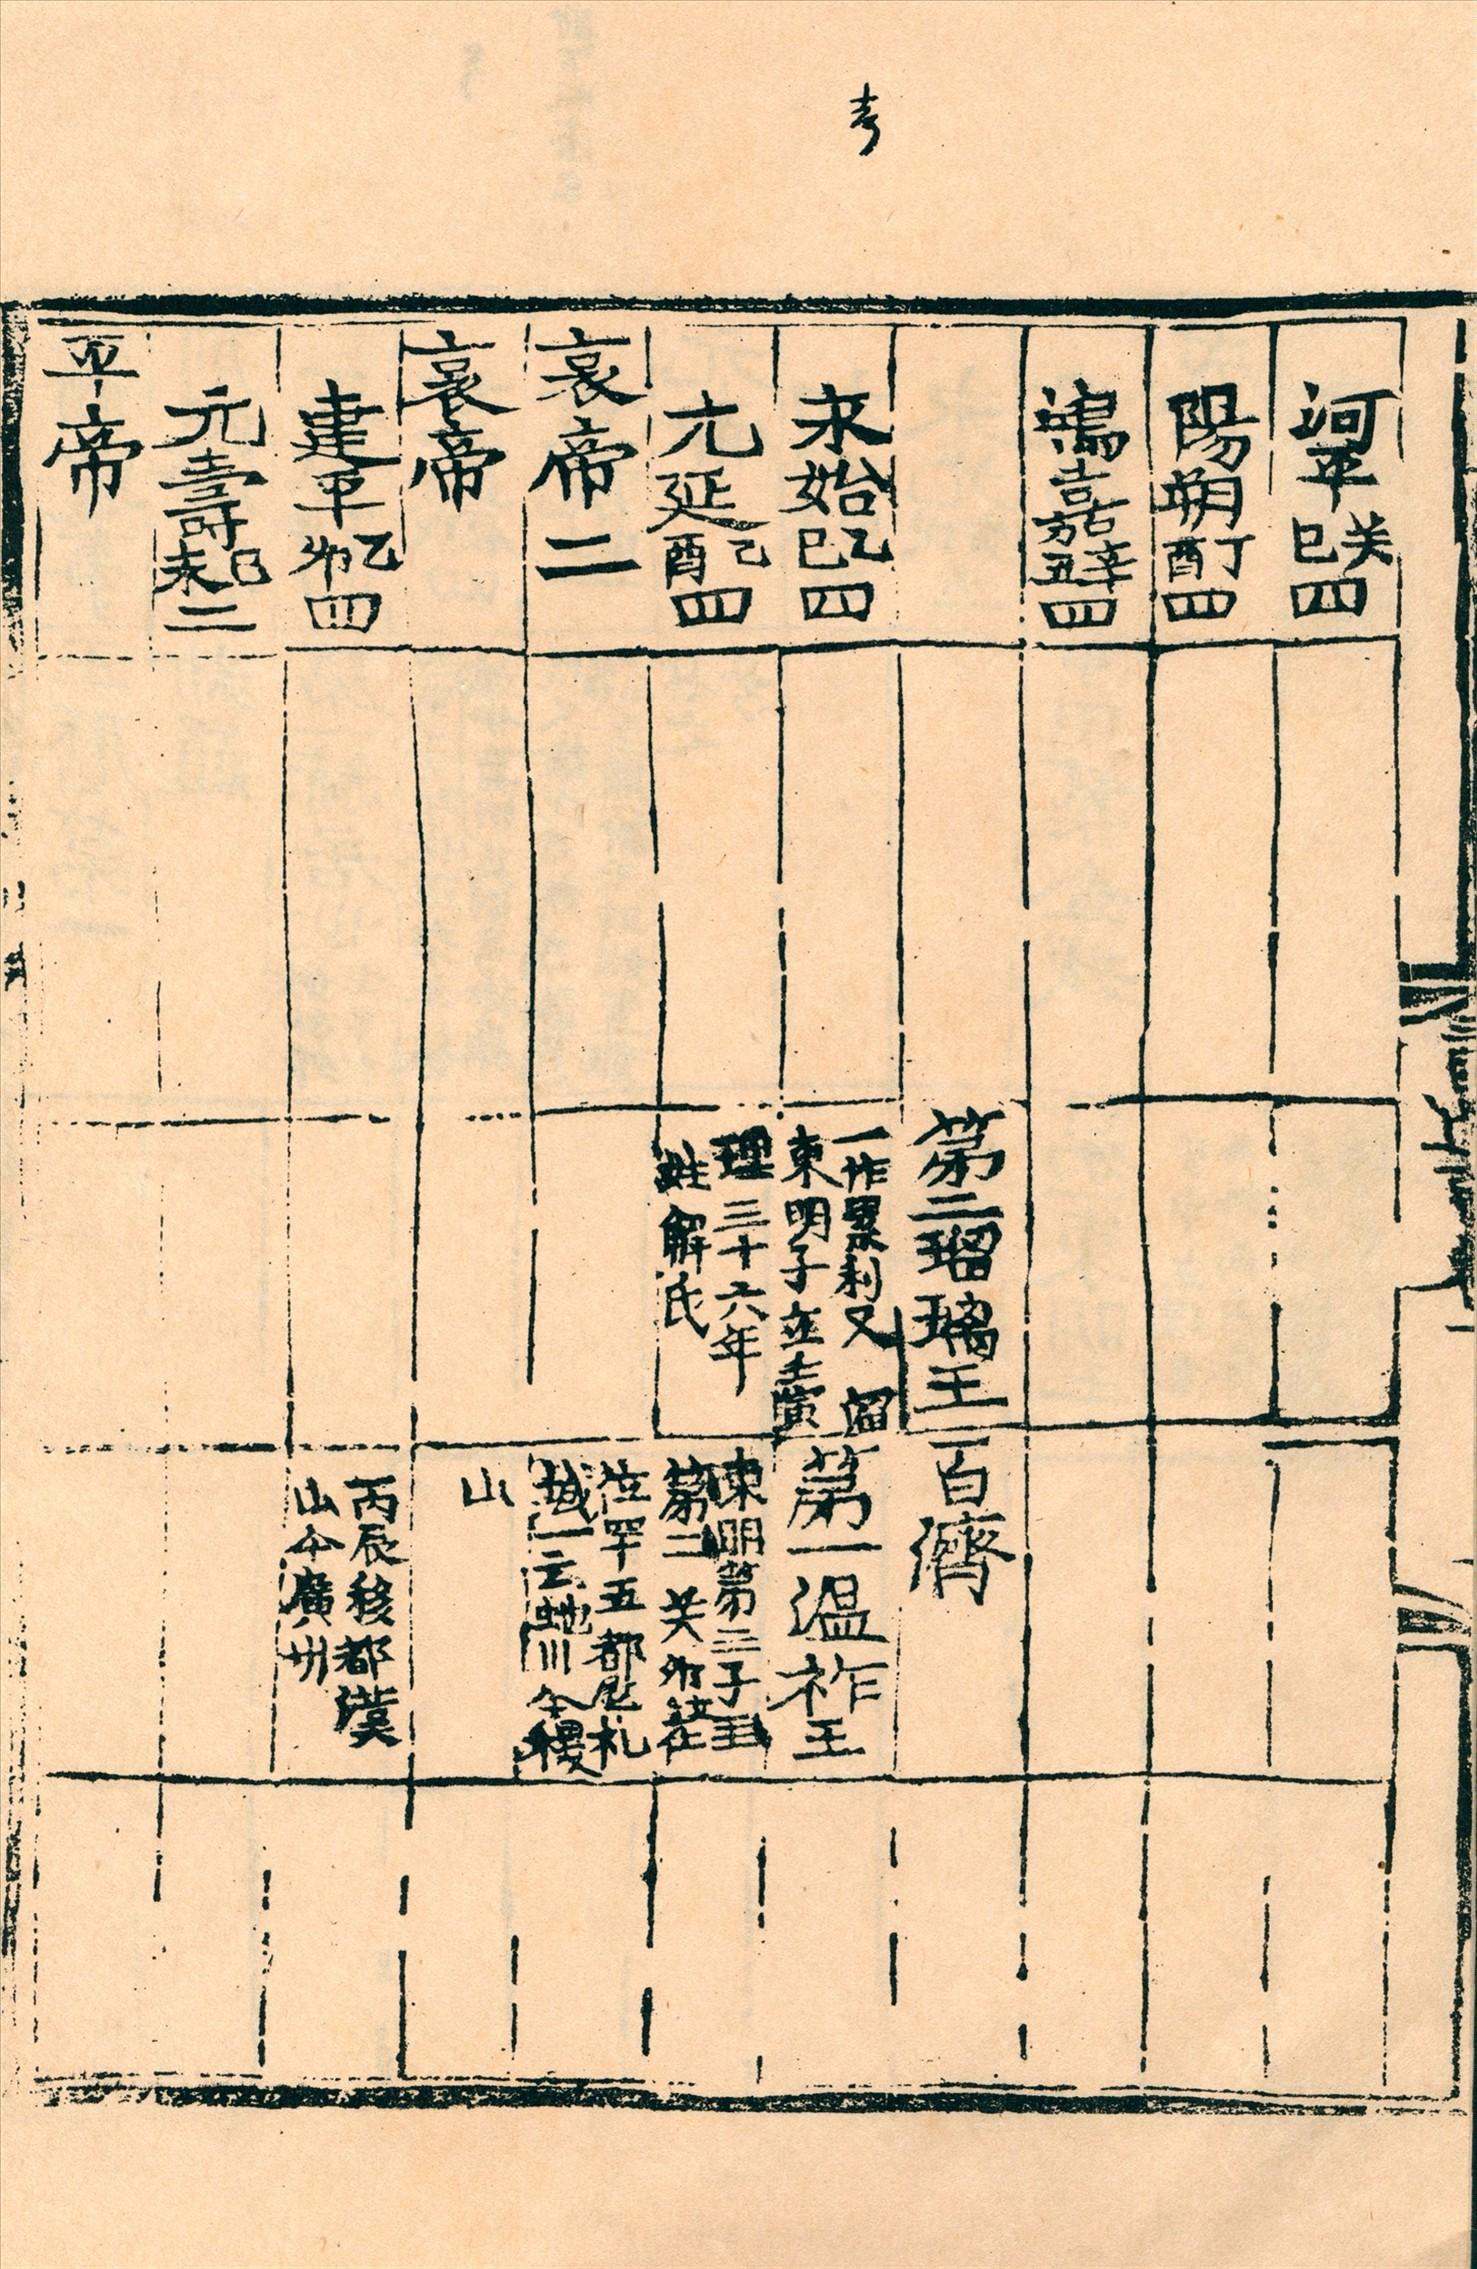 考
河平癸巳四
陽朔丁酉四
鴻嘉辛丑四
永始乙巳四
元延己酉四
哀帝二
哀帝
建平乙卯四
元壽己未二
平帝
第二瑠璃王
一作累利又 留
東明子立壬寅
理三十六年
姓解氏
百濟
第一温祚王
東明第三子一云
第二 癸卯立在
位四十五都慰札
城一云虵川今稷
山
丙辰移都漢
山今廣州